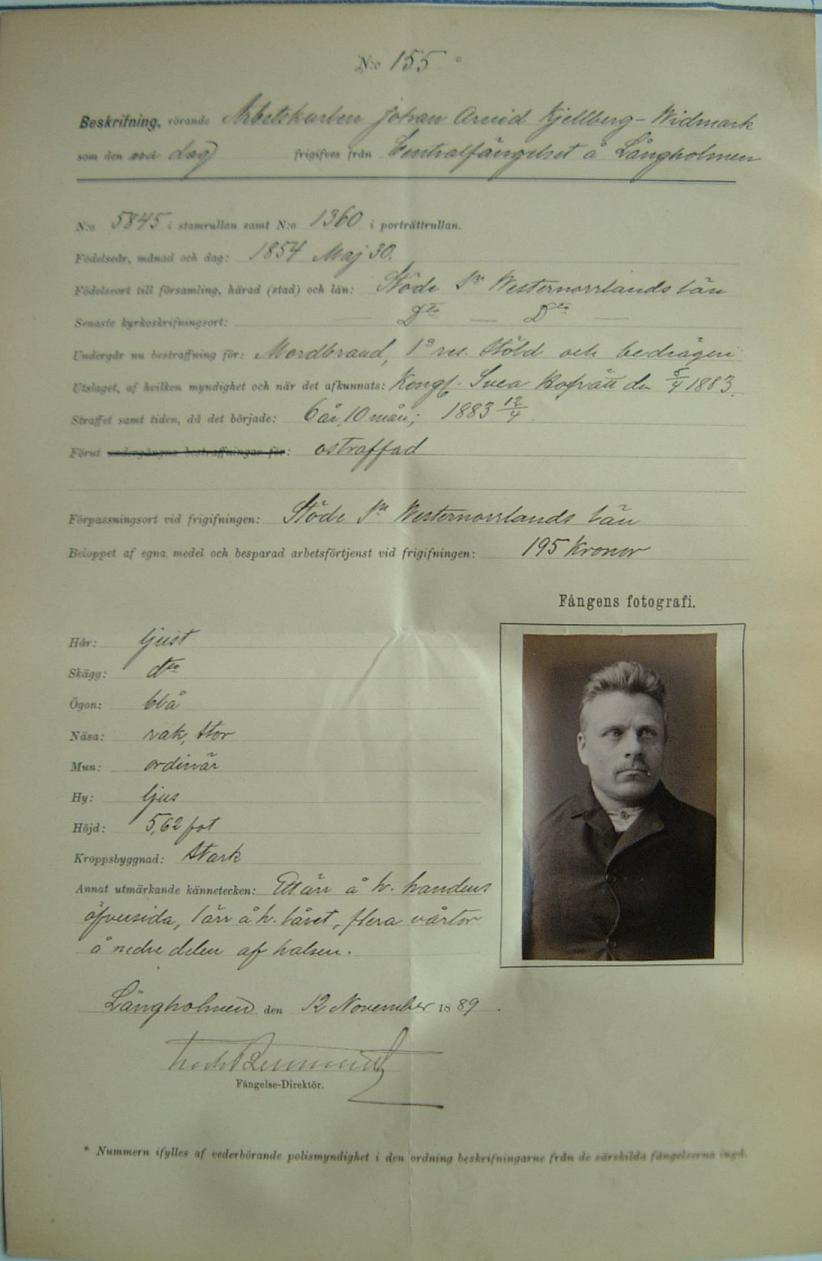 N:o 155 *
Beskrifning, rörande Arbetskarlen Johan Arvid Kjellberg-Widmark
som den dag frigifves från Centralfängelset å Långholmen
N:o 5845 i stamrullan samt N:o 1360 i porträttrullan.
Födelseår, månad och dag: 1854 Maj 30.
Födelseort till församling, härad (stad) och län: Stöde Sn Westernorrlands län
Senaste kyrkoskrifningsort: — Dto — Dto —
Undergår nu bestraffning för: Mordbrand, 1a res. stöld och bedrägeri
Utslaget, af hvilken myndighet och när det afkunnats: Kongl. Svea Hofrätt den 5/4 1883.
Straffet samt tiden, då det började: 6 år, 10 mån; 1883 12/4
Förut undergångna bestraffningar för: ostraffad
Förpassningsort vid frigifningen: Stöde Sn Westernorrlands län
Beloppet af egna medel och besparad arbetsförtjenst vid frigifningen: 195 Kronor
Fångens fotografi.
Hår: ljust
Skägg: dto
Ögon: blå
Näsa: rak, stor
Mun: ordinär
Hy: ljus
Höjd: 5,62 fot
Kroppsbyggnad: Stark
Annat utmärkande kännetecken: Ett ärr å h. handens
öfversida, 1 ärr å h. låret, flera vårtor
å nedre delen af halsen.
Långholmen den 12 November 1889.
Fängelse-Direktör.
* Nummern ifylles af vederbörande polismyndighet i den ordning beskrifningarne från de särskilda fängelserna ingå.